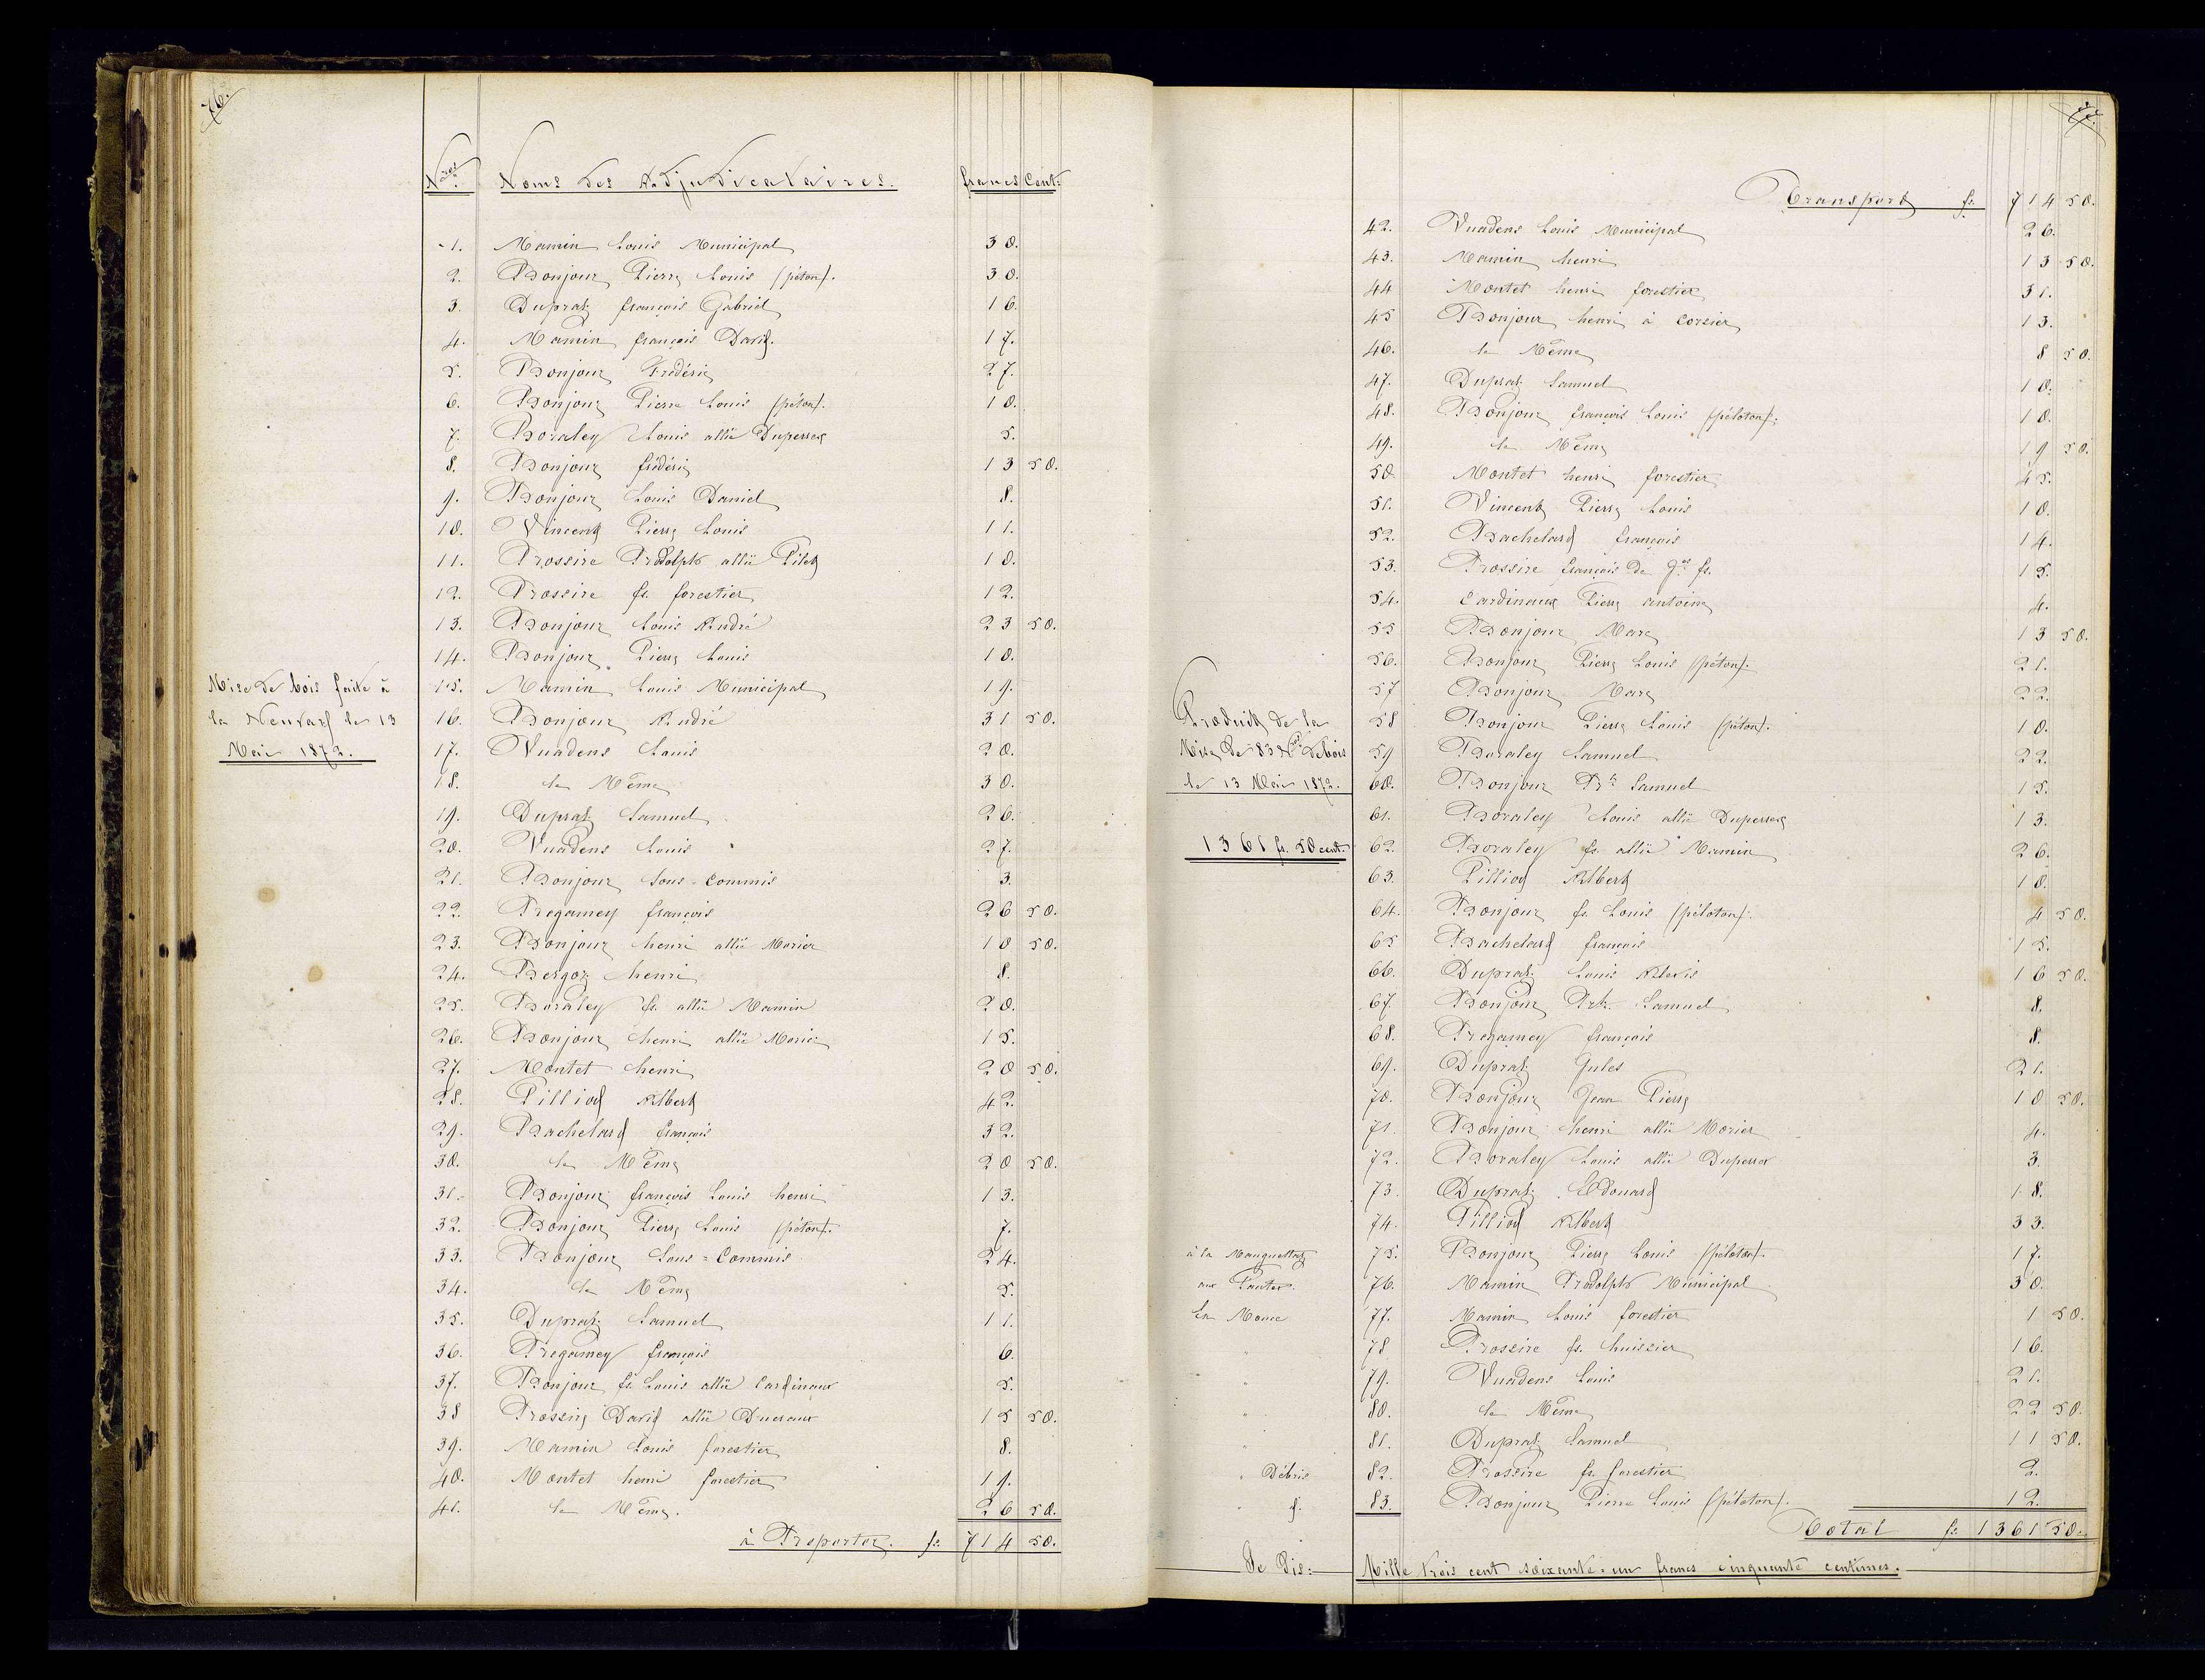 76.
N.ros Noms des Adjudicataires. francs Cent:
Mise de bois faite à
la Neuvaz le 13
Mai 1872.
1. Mamin Louis Municipal 30.
2. Bonjour Pierre Louis (péton). 30.
3. Dupraz françois Gabriel 16.
4. Mamin françois David. 17.
5. Bonjour Frédéric 27.
6. Bonjour Pierre Louis (péton). 10.
7. Boraley Louis allié Duperrex 5.
8. Bonjour frédéric 13 50.
9. Bonjour Louis Daniel 8.
10. Vincent Pierre Louis 11.
11. Rossire Rodolph allié Pilet 10.
12. Rossire fs. forestier 12.
13. Bonjour Louis André 23 50.
14. Bonjour Pierre Louis 10.
15. Mamin Louis Municipal 19.
16. Bonjour André 31 50.
17. Vuadens Louis 20.
18. le Même 30.
19. Dupraz Samuel 26.
20. Vuadens Louis 27.
21. Bonjour Sous-Commis 3.
22. Regamey françois 26 50.
23. Bonjour henri allié Morier 10 50.
24. Bergoz henri 8.
25. Boraley fs. allié Mamin 20.
26. Bonjour henri allié Morier 15.
27. Montet henri 20 50.
28. Pilliod Albert 42.
29. Bachelard françois 32.
30. le Même 20 50.
31. Bonjour françois Louis henri 13.
32. Bonjour Pierre Louis (péton). 7.
33. Bonjour Sous=Commis 24.
34. le Même 5.
35. Dupraz Samuel 11.
36. Regamey françois 6.
37. Bonjour fs. Louis allié Cardinaux 5.
38 Rossire David allié Ducraux 15 50.
39. Mamin Louis forestier 8.
40. Montet henri forestier 19.
41. le Même. 26 50.
à Reporter. fs. 714 50.
77.
Transport fs. 714 50.
42. Vuadens Louis Municipal 26.
43. Mamin henri 13 50.
44 Montet henri forestier 31.
45 Bonjour henri à Corsier 13.
46. le Même 8 50.
47. Dupraz Samuel 10.
48. Bonjour françois Louis (péloton). 10.
49. le Même 19 50.
50 Montet henri forestier 45.
51. Vincent Pierre Louis 10.
52. Bachelard françois 14.
53. Rossire françois de Jn fs. 15.
54. Cardinaux Pierre Antoine 4.
55 Bonjour Marc 13 50.
56. Bonjour Pierre Louis (péton). 21.
57 Bonjour Marc 22.
Produit de la
Mise de 83 Nros de bois
le 13 Mai 1872.
1361 fs. 50 cent.
58 Bonjour Pierre Louis (péton). 10.
59 Boraley Samuel 22.
60. Bonjour Rh Samuel 15.
61. Boraley Louis allié Duperrex 13.
62. Boraley fs. allié Mamin 26.
63. Pilliod Albert 10.
64. Bonjour fs. Louis (péloton). 4 50.
65 Bachelard françois 15.
66. Dupraz Louis Alexis 16 50.
67. Bonjour Rh. Samuel 8.
68. Regamey françois 8.
69. Dupraz Jules 21.
70. Bonjour Jean Pierre 10 50.
71. Bonjour henri allié Morier 4.
72. Boraley Louis allié Duperrex 3.
73. Dupraz Edouard 18.
74. Pilliod Albert 33.
à la Manguettaz 75. Bonjour Pierre Louis (péloton). 17.
aux Pautex. 76. Mamin Rodolph Municipal 30.
En Moille 77. Mamin Louis forestier 1 50.
" 78 Rossire fs. huissier 16.
" 79. Vuadens Louis 21.
" 80. le Même 22 50.
" 81. Dupraz Samuel 11 50.
" Débris 82. Rossire fs. forestier 2.
" d. 83. Bonjour Pierre Louis (péloton). 12.
Total fs. 1361 50.
Je Dis: Mille trois cent soixante=un francs cinquante centimes.